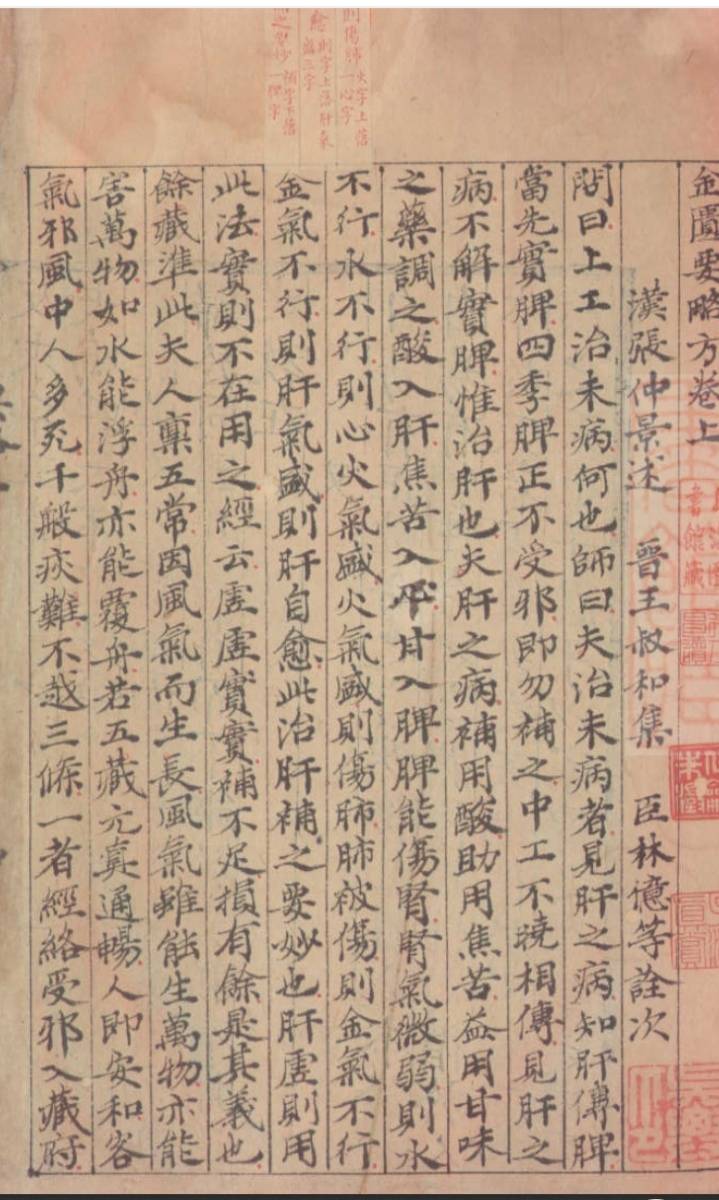 則傷肺火字上落一心字
則字上落肝氣盛三字
補字下落一脾字
金匱要略方卷上
漢張仲景述 晉王叔和集 臣林億等詮次
問曰上工治未病何也師曰夫治未病者見肝之病知肝傳脾
當先實脾四季脾正不受邪即勿補之中工不曉相傳見肝之
病不解實脾惟治肝也夫肝之病補用酸助用焦苦益用甘味
之藥調之酸入肝焦苦入心甘入脾脾能傷腎腎氣微弱則水
不行水不行則心火氣盛火氣盛則傷肺肺被傷則金氣不行
金氣不行則肝氣盛則肝自愈此治肝補之要妙也肝虛則用
此法實則不在用之經云虛虛實實補不足損有餘是其義也
餘藏準此夫人稟五常因風氣而生長風氣雖能生萬物亦能
害萬物如水能浮舟亦能覆舟若五藏元真通暢人即安和客
氣邪風中人多死千般疢難不越三條一者經絡受邪入藏府